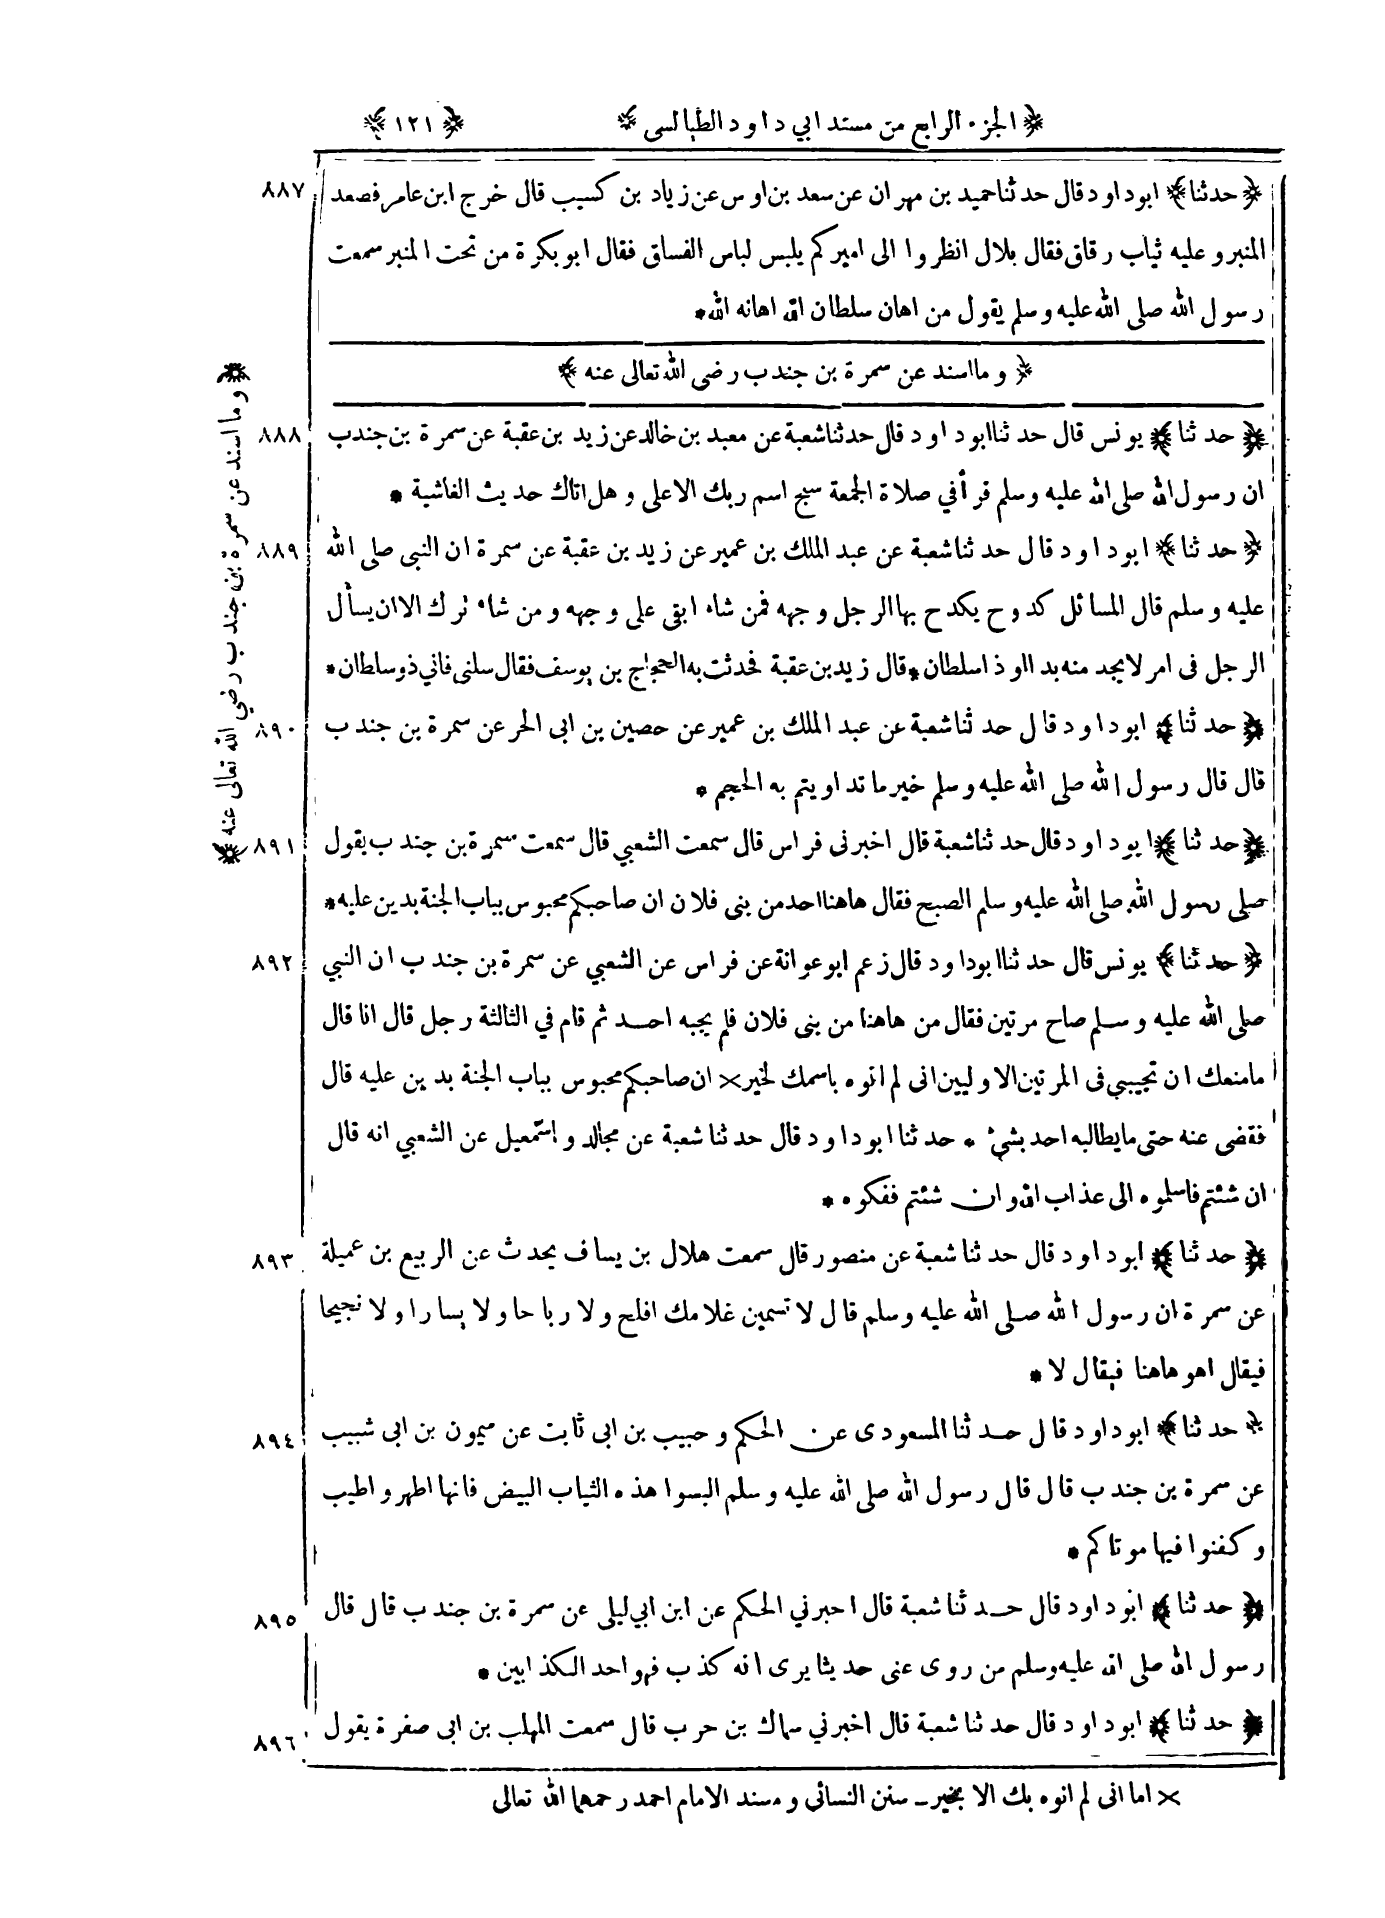 ﴿ الجزء الرابع من مسند ابي داود الطيالسى ﴾ ﴿ ١٢١ ﴾
٨٨٧ ﴿ حدثنا ﴾ ابو داود قال حدثنا حميد بن مهران عن سعد بن اوس عن زياد بن كسيب قال خرج ابن عامر فصعد
المنبر و عليه ثياب رقاق فقال بلال انظروا الى اميركم يلبس لباس الفساق فقال ابو بكرة من تحت المنبر سمعت
رسول الله صلى الله عليه وسلم يقول من اهان سلطان الله اهانه الله *
﴿ و ما اسند عن سمرة بن جندب رضى الله تعالى عنه ﴾
﴿ و ما اسند عن سمرة بن جندب رضي الله تعالى عنه ﴾
٨٨٨ ﴿ حدثنا ﴾ يونس قال حدثنا ابو داود قال حدثنا شعبة عن معبد بن خالد عن زيد بن عقبة عن سمرة بن جندب
ان رسول الله صلى الله عليه وسلم قرأ في صلاة الجمعة سبح اسم ربك الاعلى و هل اتاك حديث الغاشية *
٨٨٩ ﴿ حدثنا ﴾ ابو داود قال حدثنا شعبة عن عبد الملك بن عمير عن زيد بن عقبة عن سمرة ان النبى صلى الله
عليه وسلم قال المسائل كدوح يكدح بها الرجل وجهه فمن شاء ابقى على وجهه ومن شاء ترك الا ان يسأل
الرجل فى امر لا يجد منه بدا او ذا سلطان * قال زيد بن عقبة فحدثت به الحجاج بن يوسف فقال سلنى فاني ذو سلطان *
٨٩٠ ﴿ حدثنا ﴾ ابو داود قال حدثنا شعبة عن عبد الملك بن عمير عن حصين بن ابى الحر عن سمرة بن جندب
قال قال رسول الله صلى الله عليه وسلم خير ما تداويتم به الحجم *
٨٩١ ﴿ حدثنا ﴾ ابو داود قال حدثنا شعبة قال اخبرنى فراس قال سمعت الشعبي قال سمعت سمرة بن جندب يقول
صلى رسول الله صلى الله عليه وسلم الصبح فقال هاهنا احد من بنى فلان ان صاحبكم محبوس بباب الجنة بدين عليه *
٨٩٢ ﴿ حدثنا ﴾ يونس قال حدثنا ابو داود قال زعم ابو عوانة عن فراس عن الشعبي عن سمرة بن جندب ان النبي
صلى الله عليه وسلم صاح مرتين فقال من هاهنا من بنى فلان فلم يجبه احد ثم قام في الثالثة رجل قال انا قال
ما منعك ان تجيبي فى المرتين الاوليين انى لم انوه باسمك لخير × ان صاحبكم محبوس بباب الجنة بدين عليه قال
فقضى عنه حتى ما يطالبه احد بشئ * حدثنا ابو داود قال حدثنا شعبة عن مجالد و اسمعيل عن الشعبي انه قال
ان شئتم فاسلموه الى عذاب الله وان شئتم ففكوه *
٨٩٣ ﴿ حدثنا ﴾ ابو داود قال حدثنا شعبة عن منصور قال سمعت هلال بن يساف يحدث عن الربيع بن عميلة
عن سمرة ان رسول الله صلى الله عليه وسلم قال لا تسمين غلامك افلح ولا رباحا ولا يسارا ولا نجيحا
فيقال اهو هاهنا فيقال لا *
٨٩٤ ﴿ حدثنا ﴾ ابو داود قال حدثنا المسعودى عن الحكم و حبيب بن ابى ثابت عن ميمون بن ابى شبيب
عن سمرة بن جندب قال قال رسول الله صلى الله عليه وسلم البسوا هذه الثياب البيض فانها اطهر و اطيب
و كفنوا فيها موتاكم *
٨٩٥ ﴿ حدثنا ﴾ ابو داود قال حدثنا شعبة قال اخبرني الحكم عن ابن ابي ليلى عن سمرة بن جندب قال قال
رسول الله صلى الله عليه وسلم من روى عنى حديثا يرى انه كذب فهو احد الكذابين *
٨٩٦ ﴿ حدثنا ﴾ ابو داود قال حدثنا شعبة قال اخبرني سماك بن حرب قال سمعت المهلب بن ابى صفرة يقول
× اما انى لم انوه بك الا بخير ـ سنن النسائى و مسند الامام احمد رحمهما الله تعالى